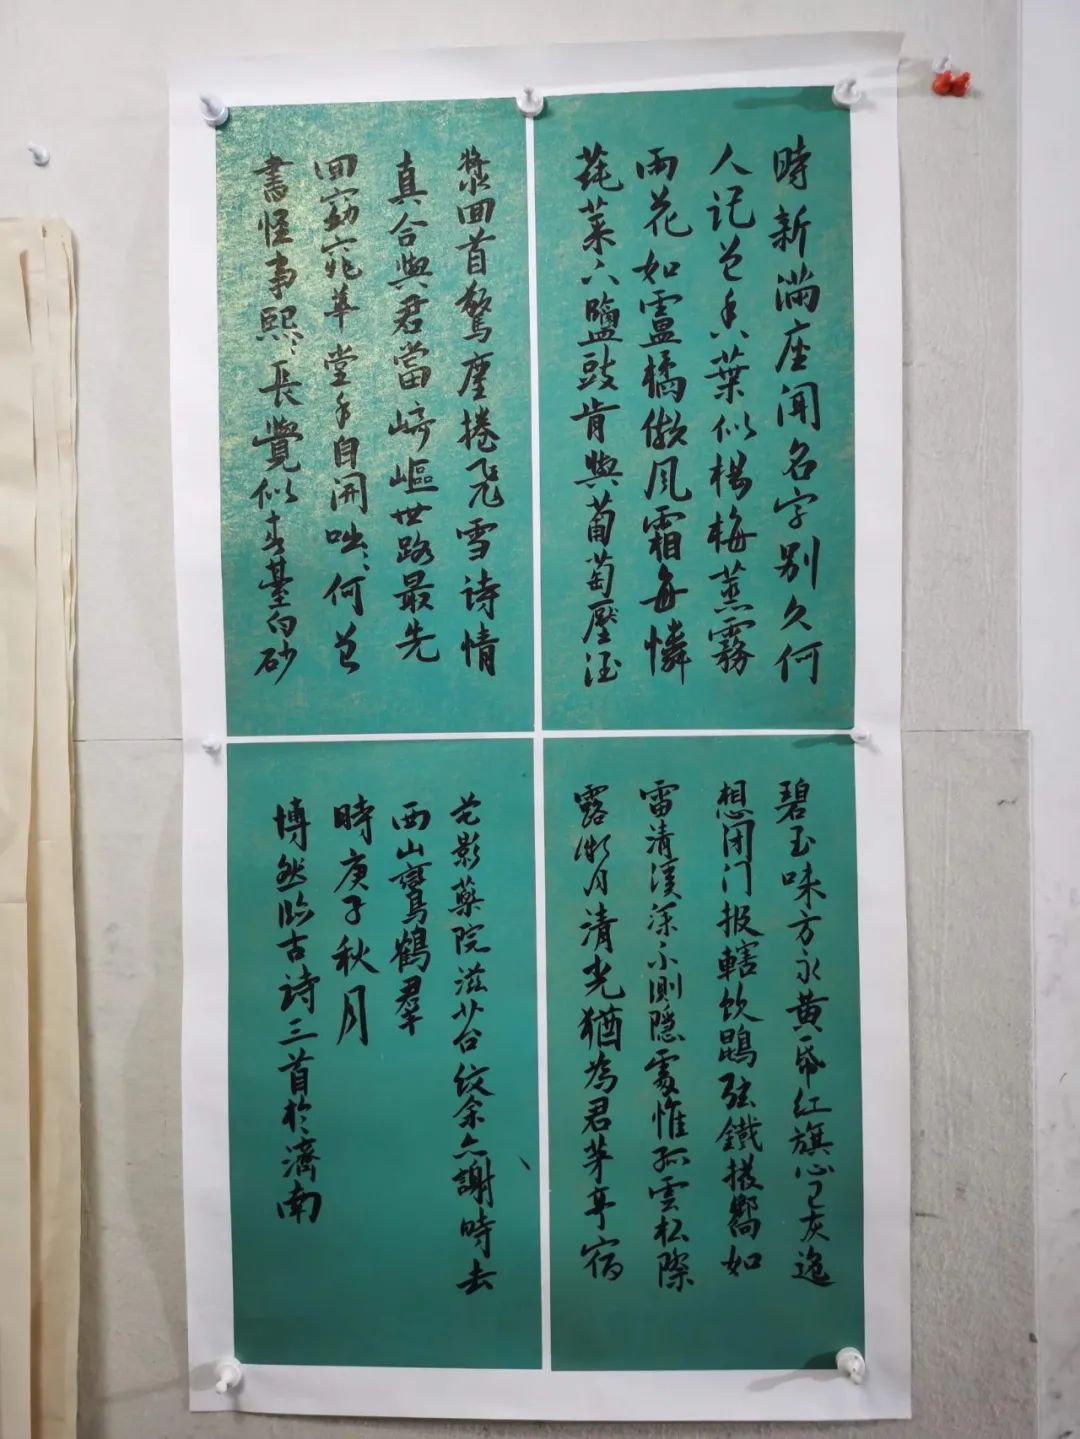 時新滿座聞名字別久何
人記色香葉似楊梅蒸霧
雨花如盧橘傲風霜每憐
蒓菜下鹽豉肯與葡萄壓酒
漿回首驚塵捲飛雪詩情
真合與君當崎嶇世路最先
回窈窕華堂手自開咄〻何曾
書怪事熙〻長覺似春臺白砂
碧玉味方永黃帋紅旗心已灰遙
想闭門投轄飲鵾弦鐵撥響如
雷清溪深不測隱處惟孤雲松際
露微月清光猶為君茅亭宿
花影藥院滋苔紋余亦謝時去
西山鸞鶴羣
時庚子秋月
博然臨古詩三首於濟南